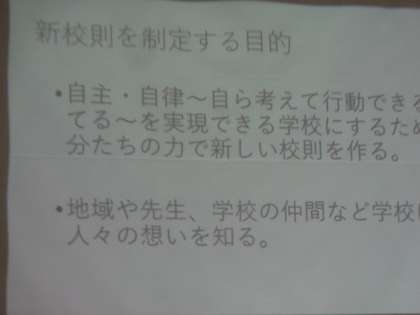 新校則を制定する目的
•自主・自律～自ら考えて行動できる
てる～を実現できる学校にするため
分たちの力で新しい校則を作る。
•地域や先生、学校の仲間など学校
人々の想いを知る。